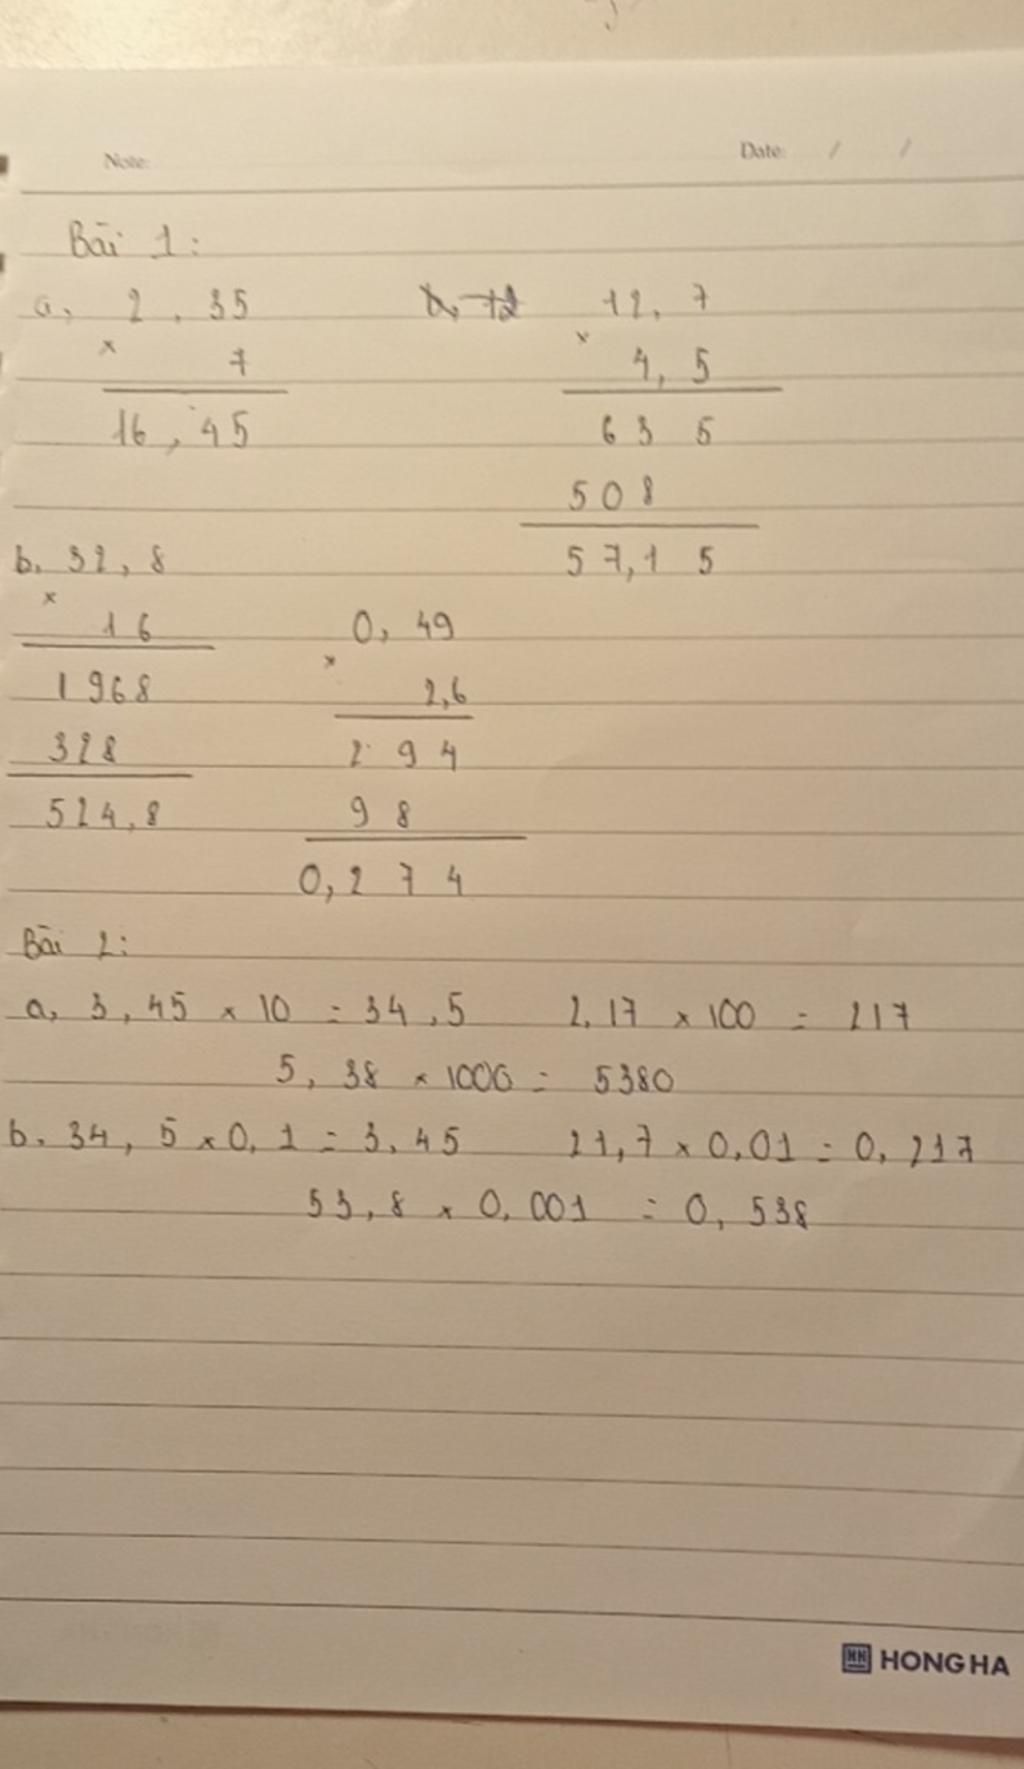 Note:
Date: / /
Bài 1:
a, 2,35
x 7
16,45
12,7
x 4,5
635
508
57,15
b. 32,8
x 16
1968
328
524,8
0,49
x 2,6
294
98
0,274
Bài 2:
a, 3,45 x 10 = 34,5 2,17 x 100 = 217
5,38 x 1000 = 5380
b. 34,5 x 0,1 = 3,45 21,7 x 0,01 = 0,217
53,8 x 0,001 = 0,538
HONG HA